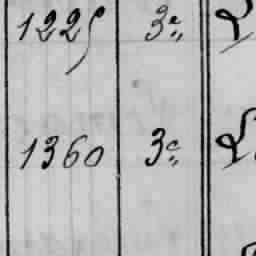 1225 3e
1360 3e